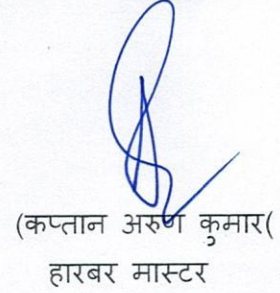 (कप्तान अरुण कुमार(
हारबर मास्टर